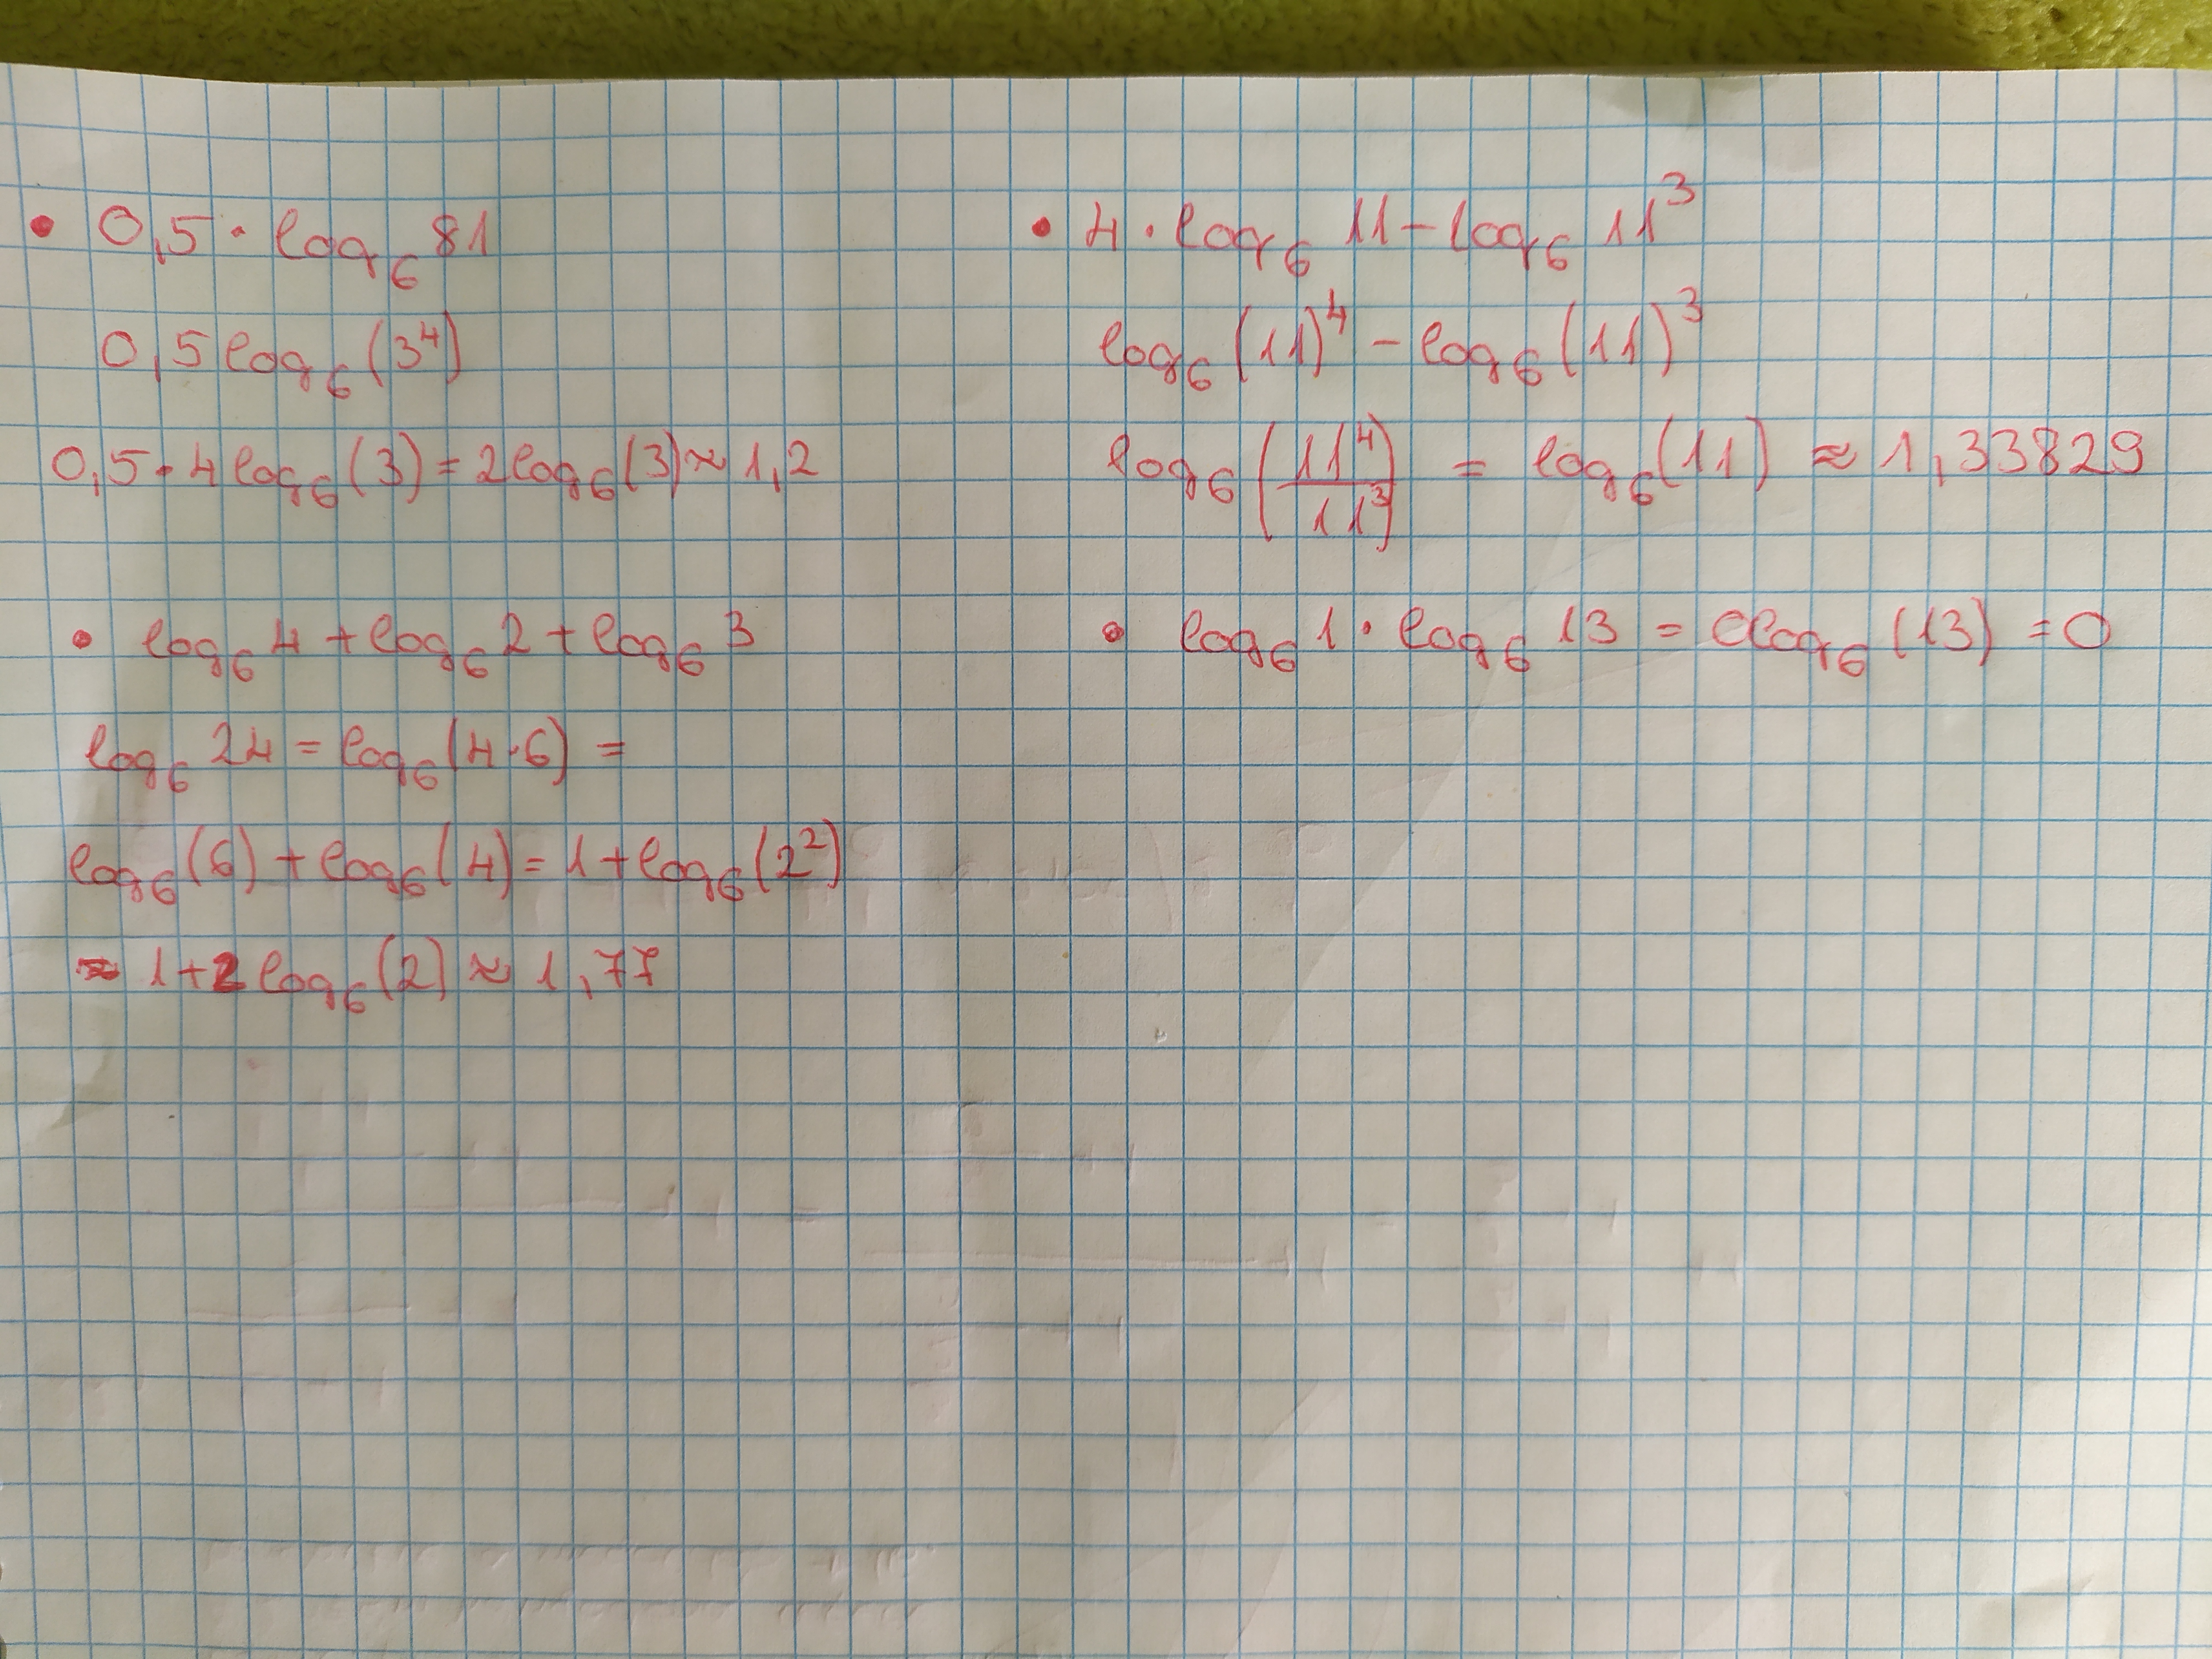 • 0,5 · log₆ 81
0,5 log₆ (3⁴)
0,5 · 4 log₆ (3) = 2 log₆ (3) ≈ 1,2
• log₆ 4 + log₆ 2 + log₆ 3
log₆ 24 = log₆ (4·6) =
log₆ (6) + log₆ (4) = 1 + log₆ (2²)
≈ 1 + 2 log₆ (2) ≈ 1,77
• 4 · log₆ 11 - log₆ 11³
log₆ (11)⁴ - log₆ (11)³
log₆ (11⁴/11³) = log₆ (11) ≈ 1,33829
• log₆ 1 · log₆ 13 = 0log₆ (13) = 0